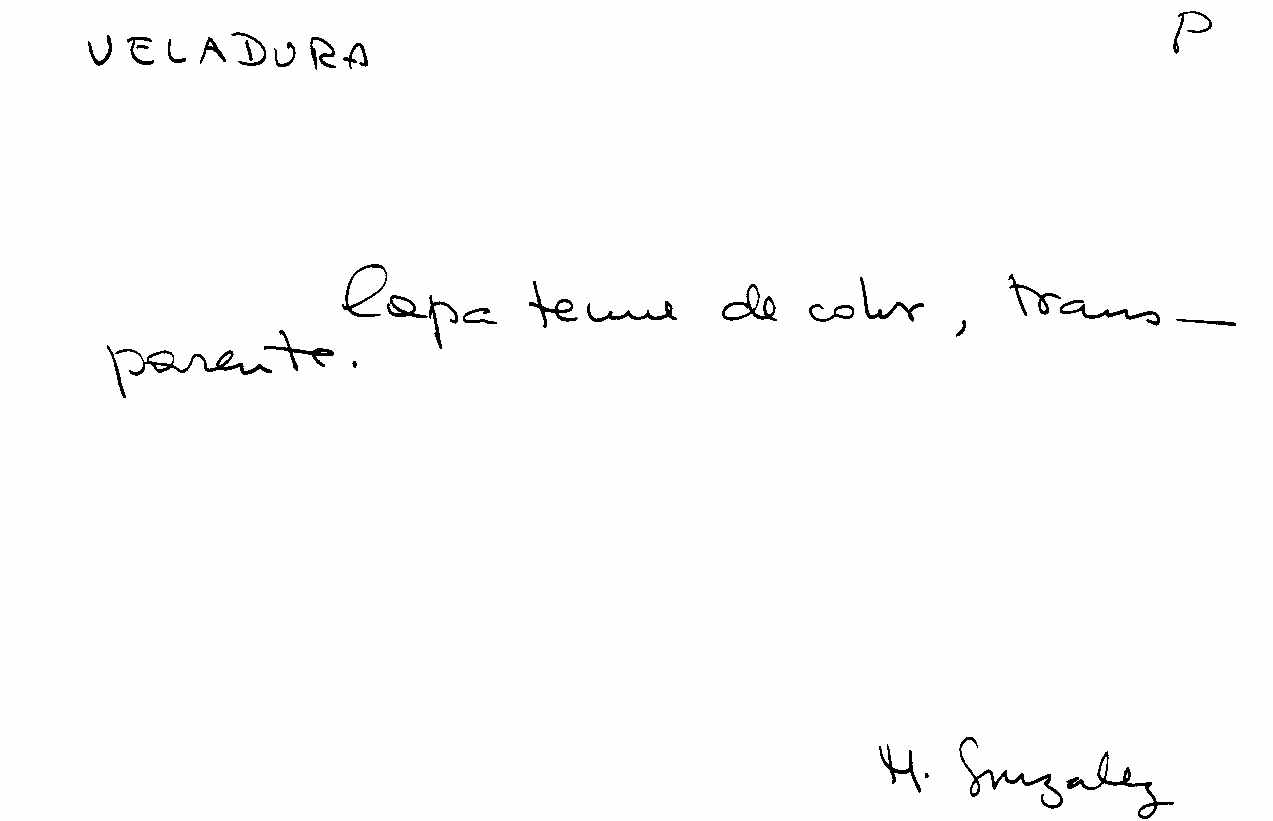 VELADURA P
Capa tenue de color, trans-
parente.
M. González